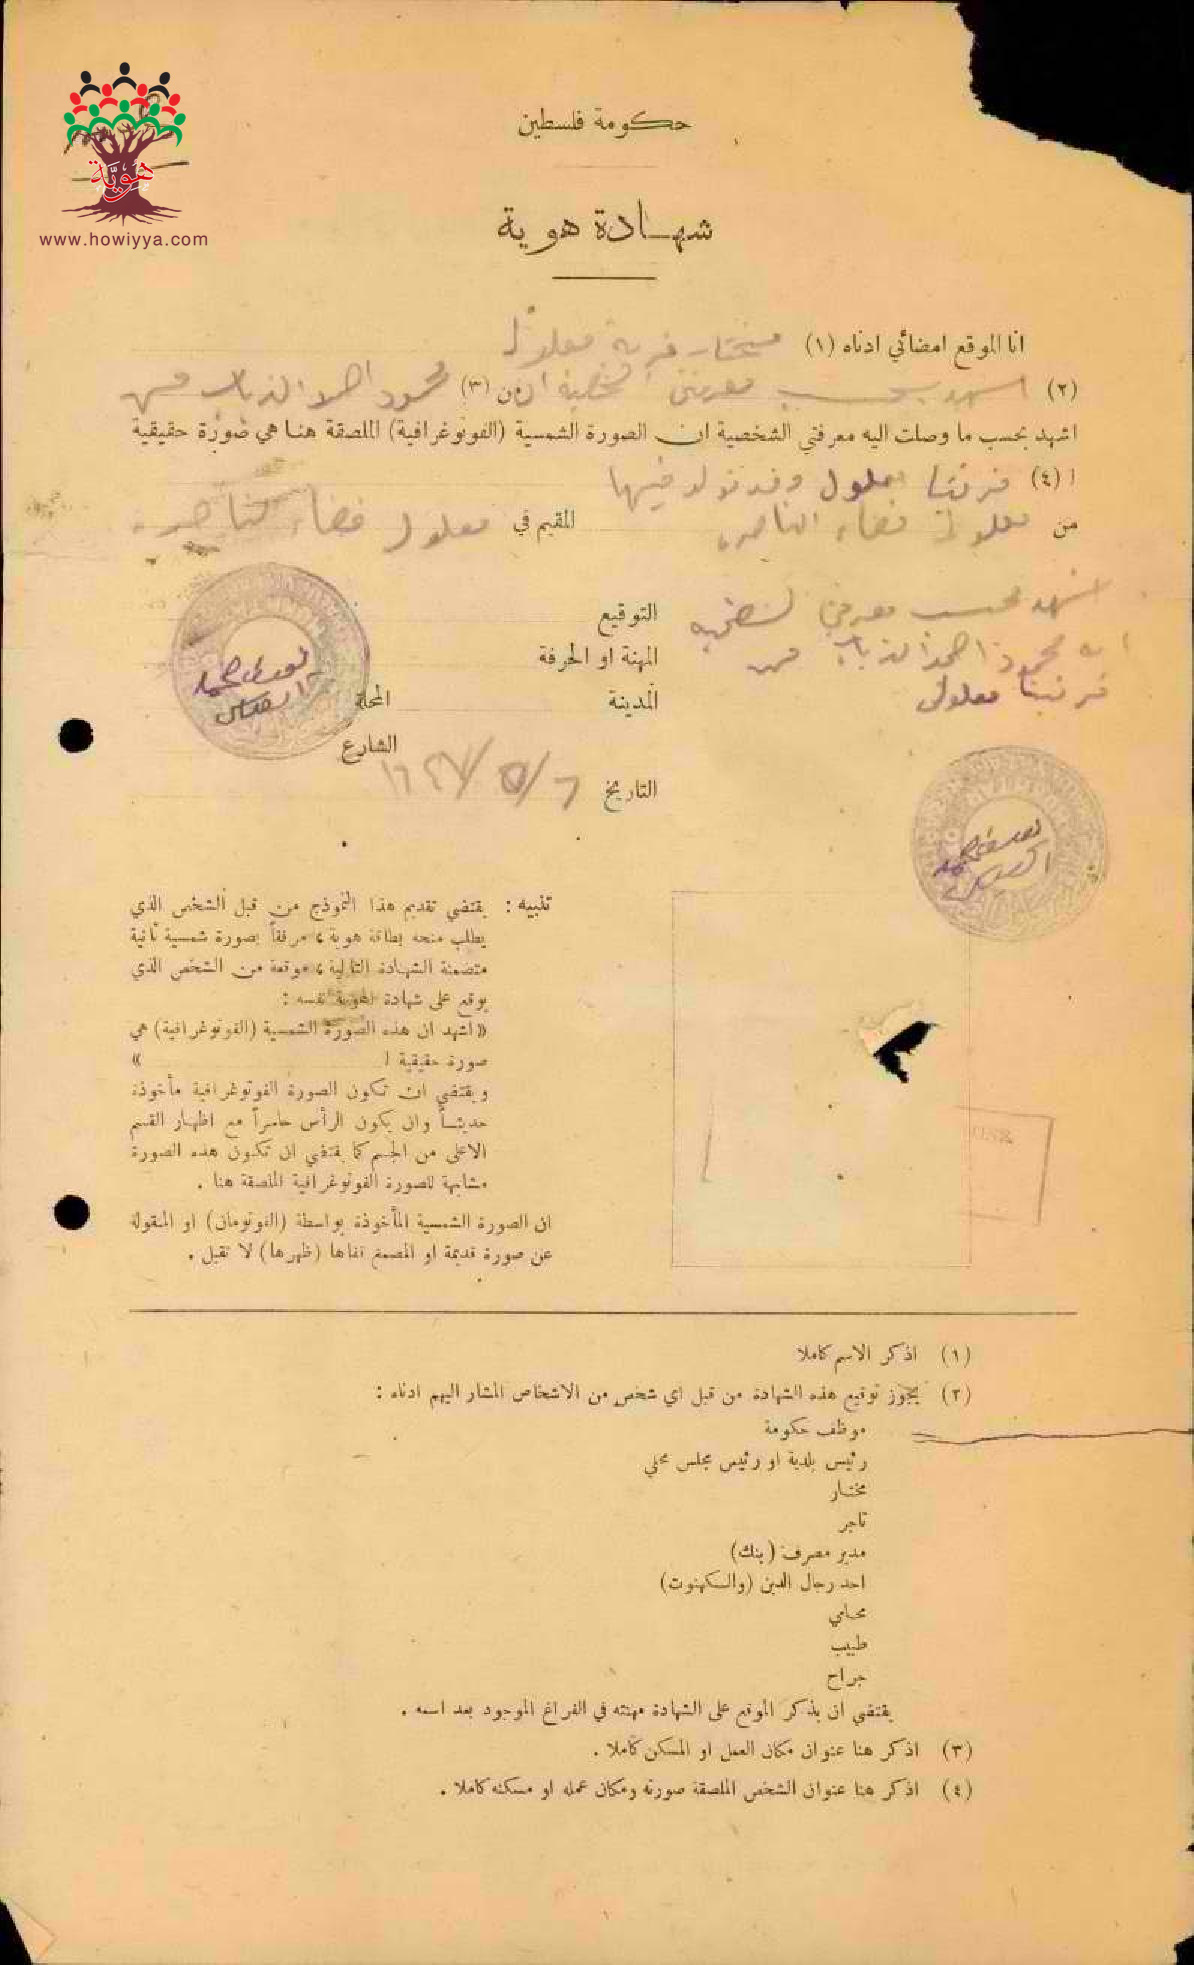 هوية
www.howiyya.com
حكومة فلسطين
شهادة هوية
انا الموقع امضائي ادناه (١) مختار قرية معلول
(٢) اشهد بحسب معرفتي الشخصية ان من (٣) محمود احمد الذياب من
اشهد بحسب ما وصلت اليه معرفتي الشخصية ان الصورة الشمسية (الفوتوغرافية) الملصقة هنا هي صورة حقيقية
ا (٤) قريتنا معلول وقد تولد فيها
من معلول قضاء الناصره المقيم في معلول قضاء الناصره
التوقيع
المهنة او الحرفة
المدينة المحلة
الشارع
التاريخ ٦/٥/
اشهد بحسب معرفتي الشخصيه
انه محمود احمد الذياب من
قريتنا معلول
تنبيه : يقتضي تقديم هذا النموذج من قبل الشخص الذي
يطلب منحه بطاقة هوية ، مرفقاً بصورة شمسية ثانية
متضمنة الشهادة التالية ، موقعة من الشخص الذي
يوقع على شهادة الهوية نفسه :
«اشهد ان هذه الصورة الشمسية (الفوتوغرافية) هي
صورة حقيقية ا »
ويقتضي ان تكون الصورة الفوتوغرافية مأخوذة
حديثاً وان يكون الرأس حاسراً مع اظهار القسم
الاعلى من الجسم كما يقتضي ان تكون هذه الصورة
مشابهة للصورة الفوتوغرافية الملصقة هنا .
ان الصورة الشمسية المأخوذة بواسطة (الفوتومان) او المنقولة
عن صورة قديمة او المصمغ قفاها (ظهرها) لا تقبل .
(١) اذكر الاسم كاملا
(٢) يجوز توقيع هذه الشهادة من قبل اي شخص من الاشخاص المشار اليهم ادناه :
موظف حكومة
رئيس بلدية او رئيس مجلس محلي
مختار
تاجر
مدير مصرف (بنك)
احد رجال الدين (والكهنوت)
محامي
طبيب
جراح
يقتضي ان يذكر الموقع على الشهادة مهنته في الفراغ الموجود بعد اسمه .
(٣) اذكر هنا عنوان مكان العمل او المسكن كاملا .
(٤) اذكر هنا عنوان الشخص الملصقة صورته ومكان عمله او مسكنه كاملا .